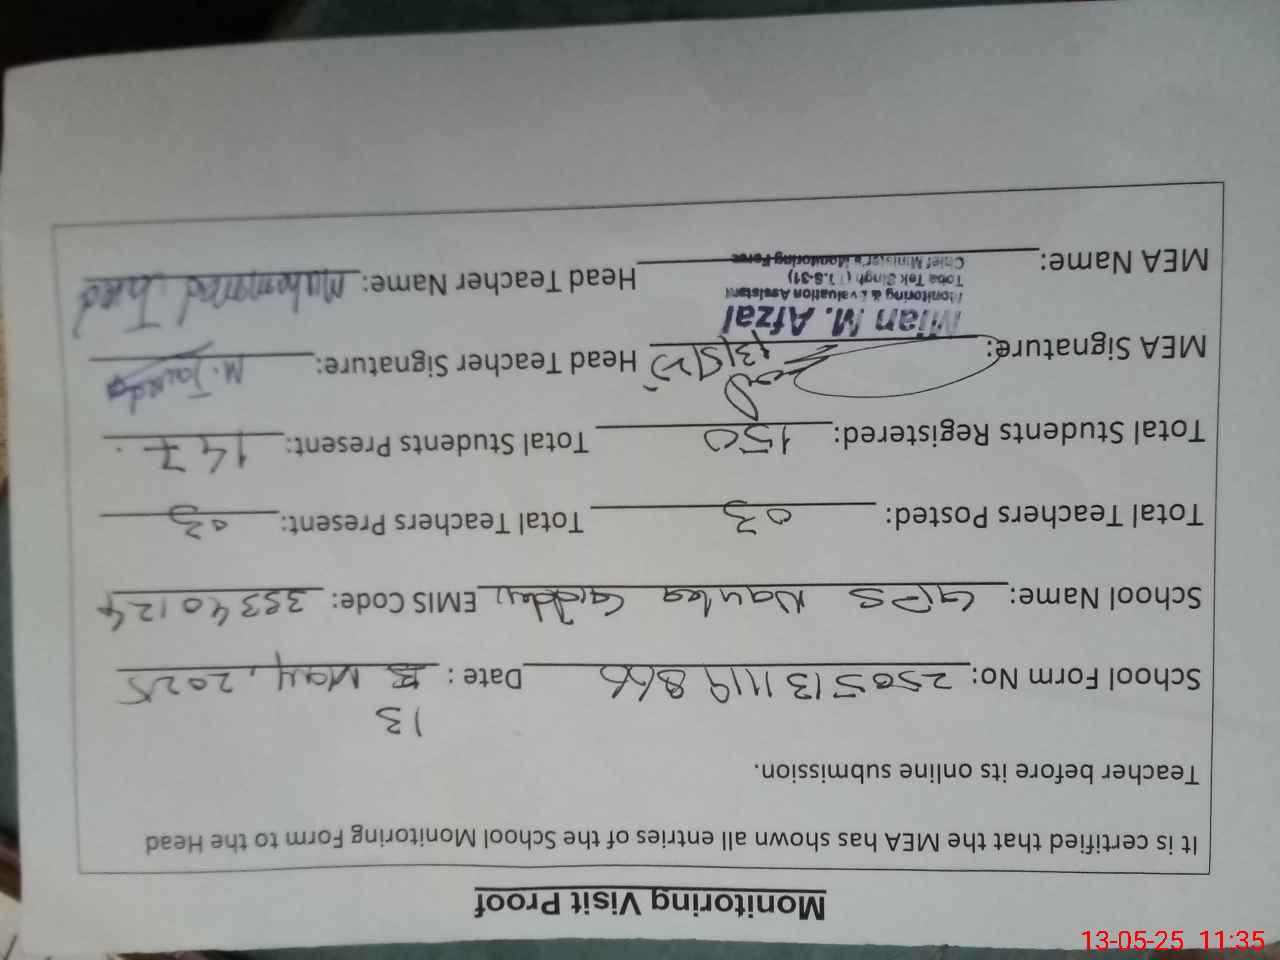 Monitoring Visit Proof
It is certified that the MEA has shown all entries of the School Monitoring Form to the Head
Teacher before its online submission.
13
School Form No: 2505131119866 Date: May, 2025
School Name: GPS Nawla EMIS Code: 33340124
Total Teachers Posted: 03 Total Teachers Present: 03
Total Students Registered: 150 Total Students Present: 147
MEA Signature: 13/5/25 Head Teacher Signature: M. Javed
Mian M. Afzal
Monitoring & Evaluation Assistant
Toba Tek Singh (T.S-31)
Chief Minister's Monitoring Force
MEA Name: Head Teacher Name: Muhammad Javed
13-05-25 11:35